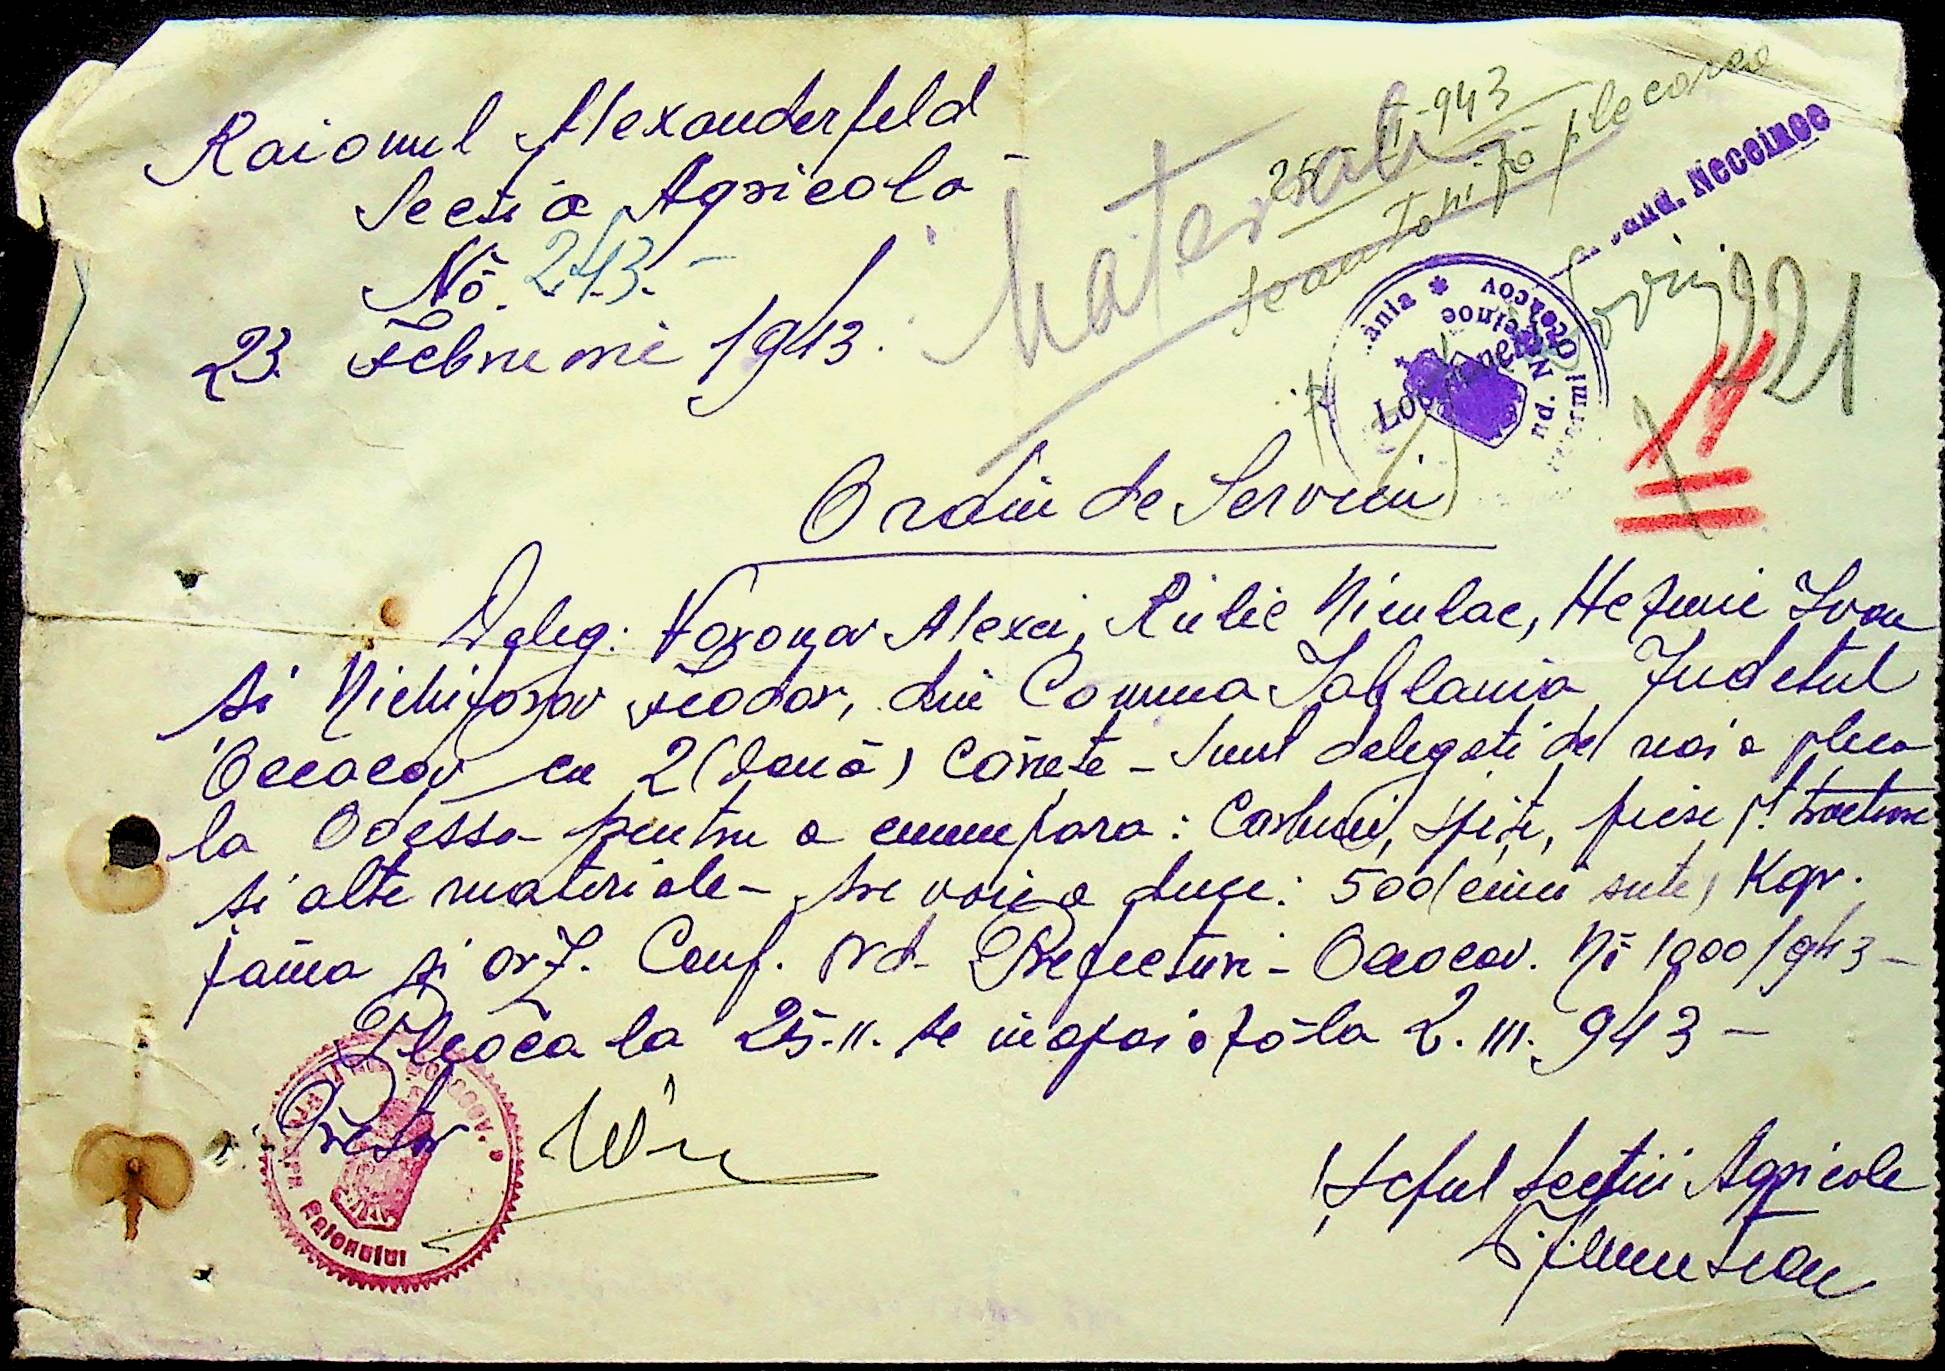 Raionul Alexanderfeld
Secția Agricolă
No. 243.-
23. Februarie 1943.
Material
25-II-943
plecarea
Jand. Neceinoe
221
11
Ordin de Serviciu
Deleg: Voronov Alexei, Niculae, Ivan
si Nichiforov Feodor, din Comuna Jablania Judetul
Oceacov cu 2 (două) cărute - Sunt delegati de noi a pleca
la Odessa pentru a cumpara: Carbuni, spite, piese pt. tractoare
si alte materiale - Are voie a duce: 500 (cinci sute) Kgr.
faina si orz. Conf. Ord. Prefecturi - Oceacov. No 1000/943 -
Pleaca la 25.II. se inapoiază la 2.III.943 -
Pretor
Raionului
Șeful Secției Agricole